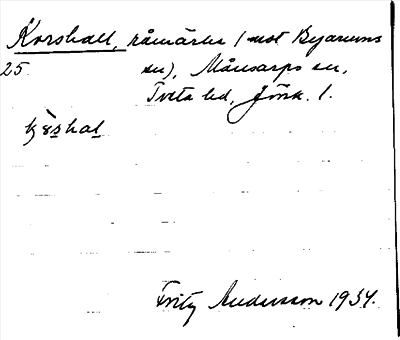 Korshall, råmärke (mot Bjarums
25. sn), Månsarps sn,
Tveta hd, Jönk. l.
kò̱shal
Fritz Andersson 1934.